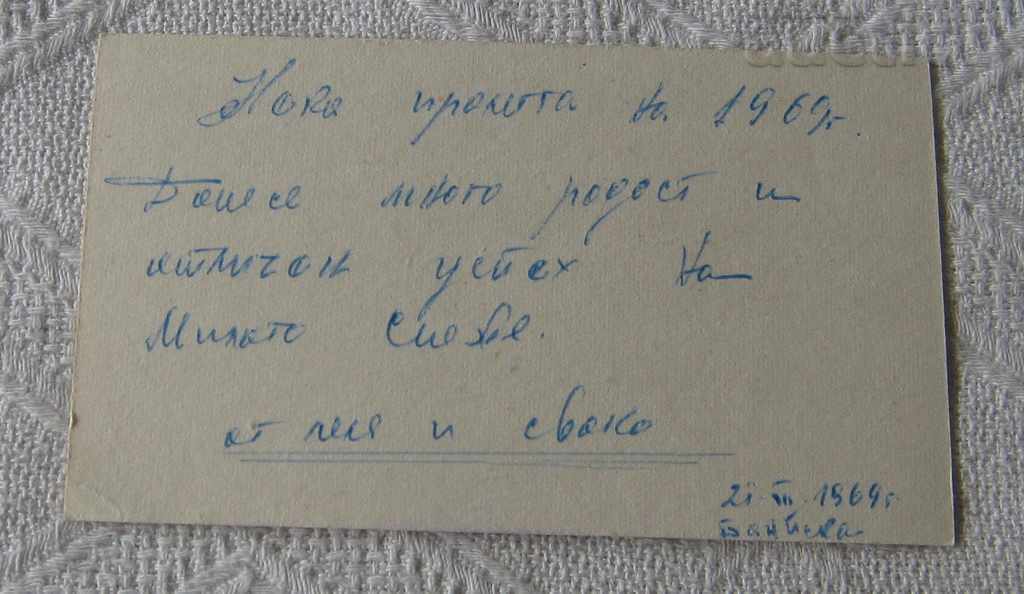 Нека пролетта на 1969г.
Донесе много радост и
отличен успех на
Милото Снеже.
от леля и свако
21. III. 1969г.